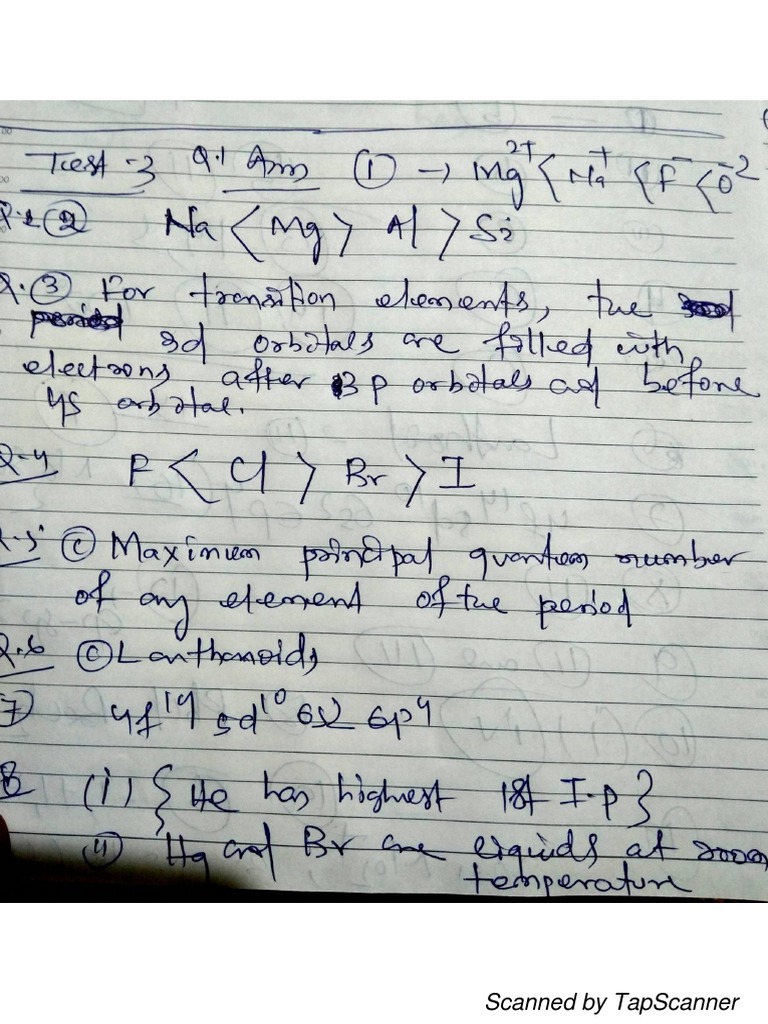 Test-3 Q.1 Ans ① → Mg²⁺ < Na⁺ < F⁻ < O⁻²
Q.2 ② Na < Mg > Al > Si
Q.③ For transition elements, the
3d orbitals are filled with
electrons after 3p orbitals and before
4s orbital.
Q-4 F < Cl > Br > I
Q-5 ⓒ Maximum principal quantum number
of any element of the period
Q.6 ⓒ Lanthanoids
⑦ 4f¹⁴ 5d¹⁰ 6s² 6p⁴
8 (i) { He has highest 1st I.p }
(ii) Hg and Br are liquids at room
temperature
Scanned by TapScanner